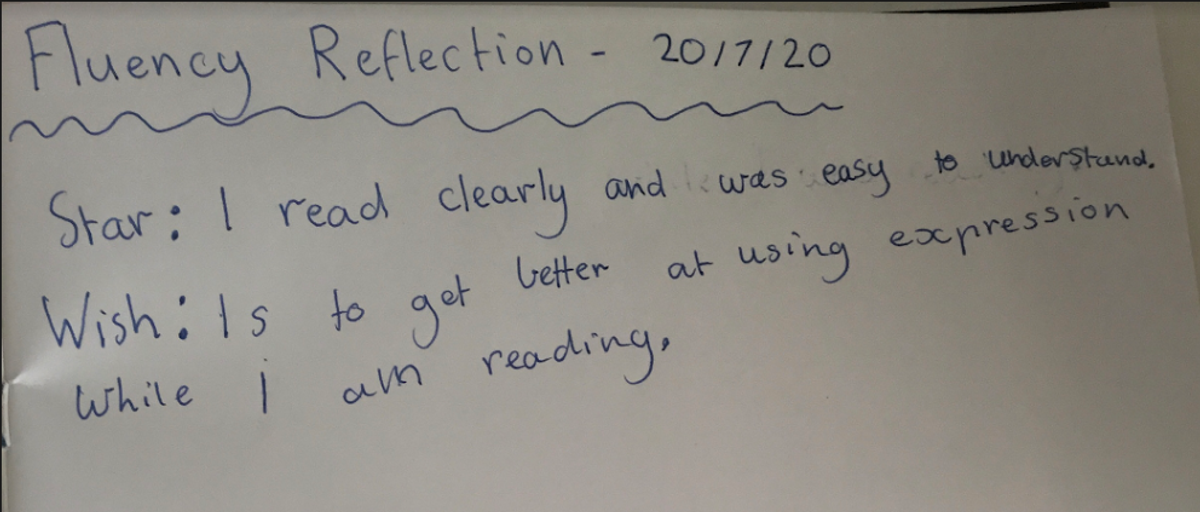 Fluency Reflection - 20/7/20
Star: I read clearly and was easy to understand.
Wish: Is to get better at using expression
while i am reading.